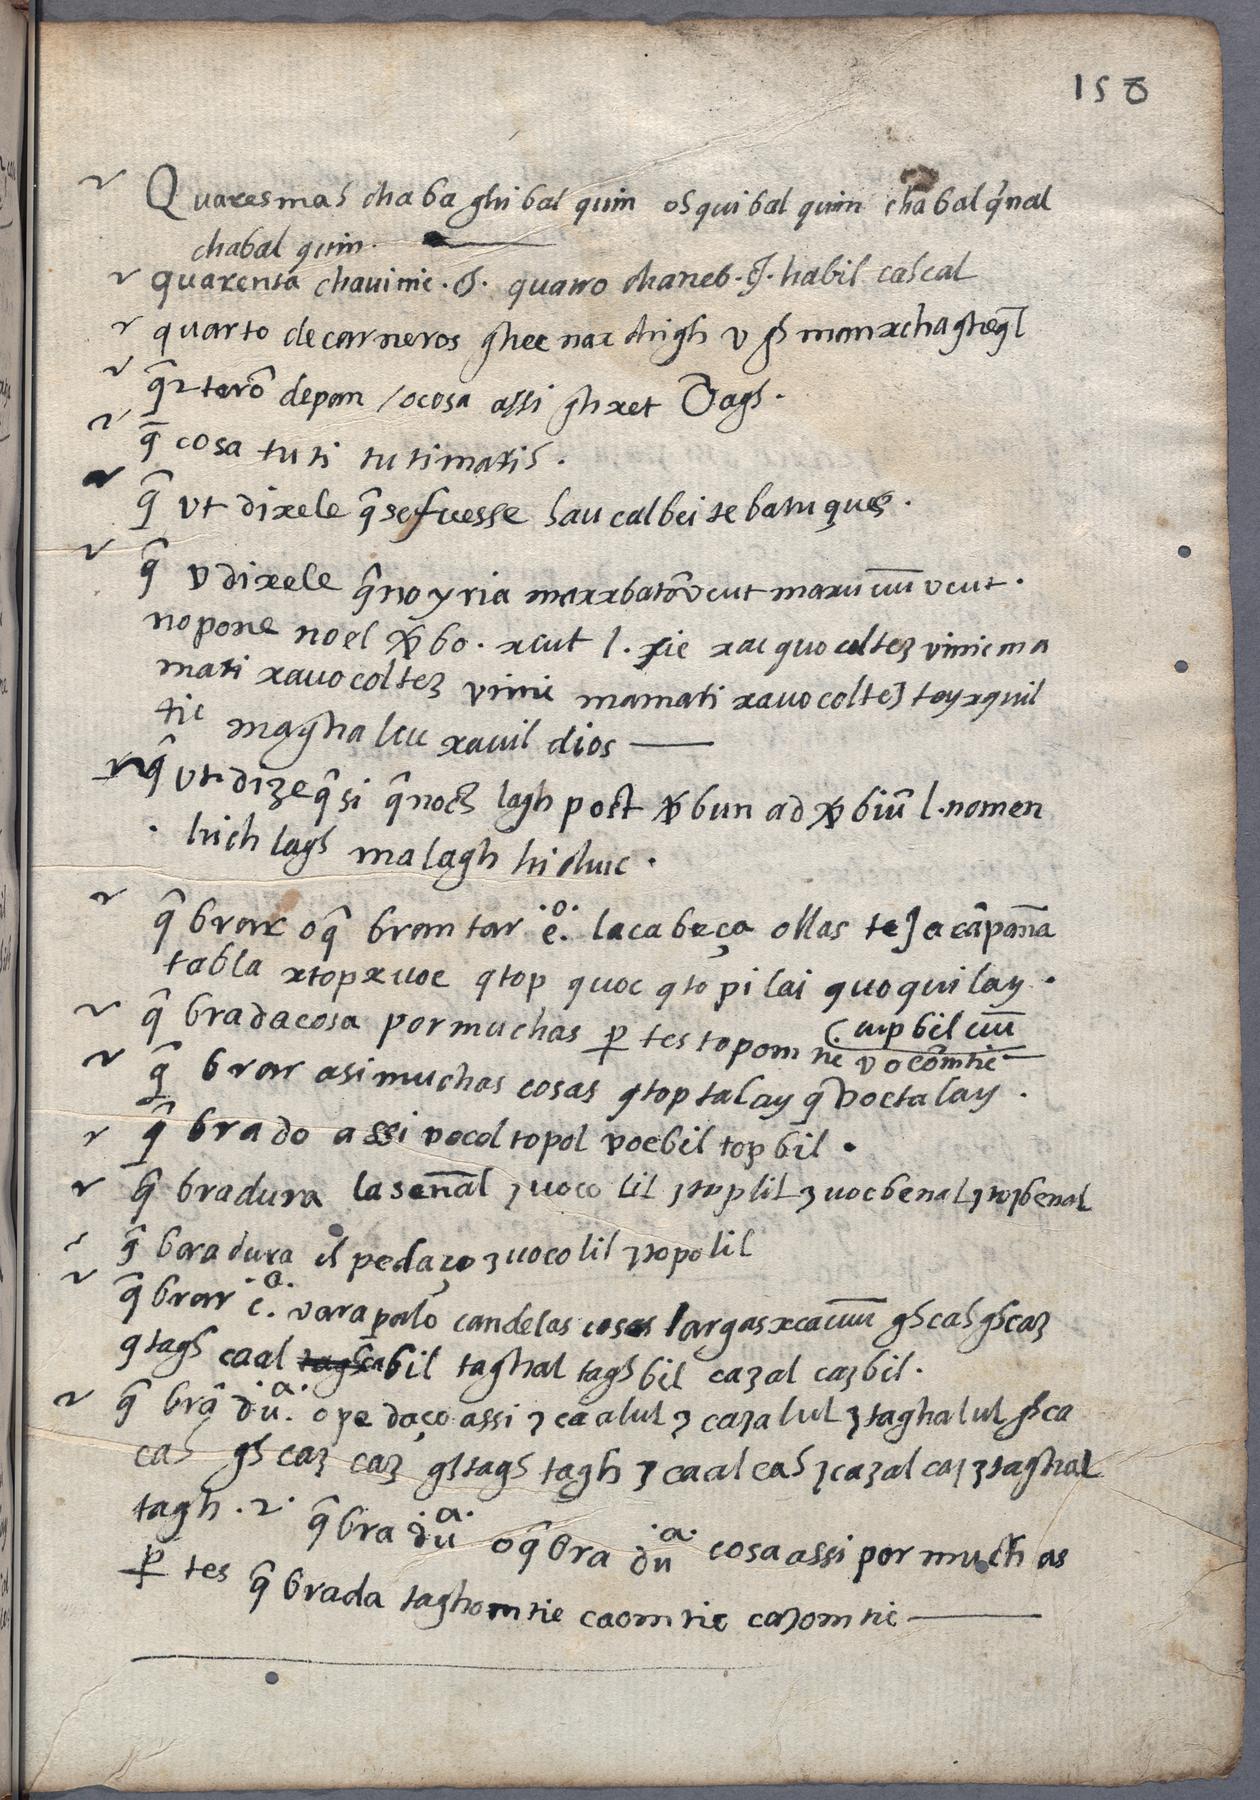 158
Quaresmas chaba ghibal quin osquibal quin chabal q̃nal
chabal quin.
quarenta chauinic .S. quatro chaneb .S. habil cascal
quarto decarneros ghec nax chigh v gh manxchagheg̃l
q̃rterõ depan / ocosa assi ghxet vags .
q̃ cosa tu ti tu timatis .
q̃ vt dixele q̃ sefuesse sau calbei te batuques .
q̃ v dixele q̃ no yria maxxbatõ vcut
nopone noel bo . xcut l. xie xac quo coltez vinicma
mati xauocoltez vinic mamati xauocoltez toyxquil
tic maghalcu xauil dios
q̃ vt dize q̃ si q̃ nocħ lagh post bun ad biũ l. nomen
. hich lags malagh hichuc .
q̃ brar oq̃ brantar .e.º lacabeça ollas teja cãpana
tabla xtopxuoc qtop quoc qtopilai quoquilay .
q̃ bradacosa pormuchas ptes topomtic (cupbil
vocõmtic
q̃ brar asimuchas cosas qtoptalay q̃ voctalay .
q̃ bra do assi vocol topol vocbil topbil .
q̃ bradura la señal zuoco lil ztoplil zuocbenal ztopbenal
q̃ bradura el pedaço zuocolil ztopolil
q̃ brar .e.ª vara palo candelas cosas largas ghcas ghcaz
qtags caal tagscabil taghal tagsbil cazal cazbil .
q̃ brã du.ª opedaço assi zcaalul zcazalul ztaghalul ghca
cas ghcaz caz ghtags tagh zcaalcas zcazalcaz ztaghal
tagh . r. q̃ bra duª oq̃ bra duª cosa assi por muchas
ptes q̃ brada taghomtic caomtic cazomtic